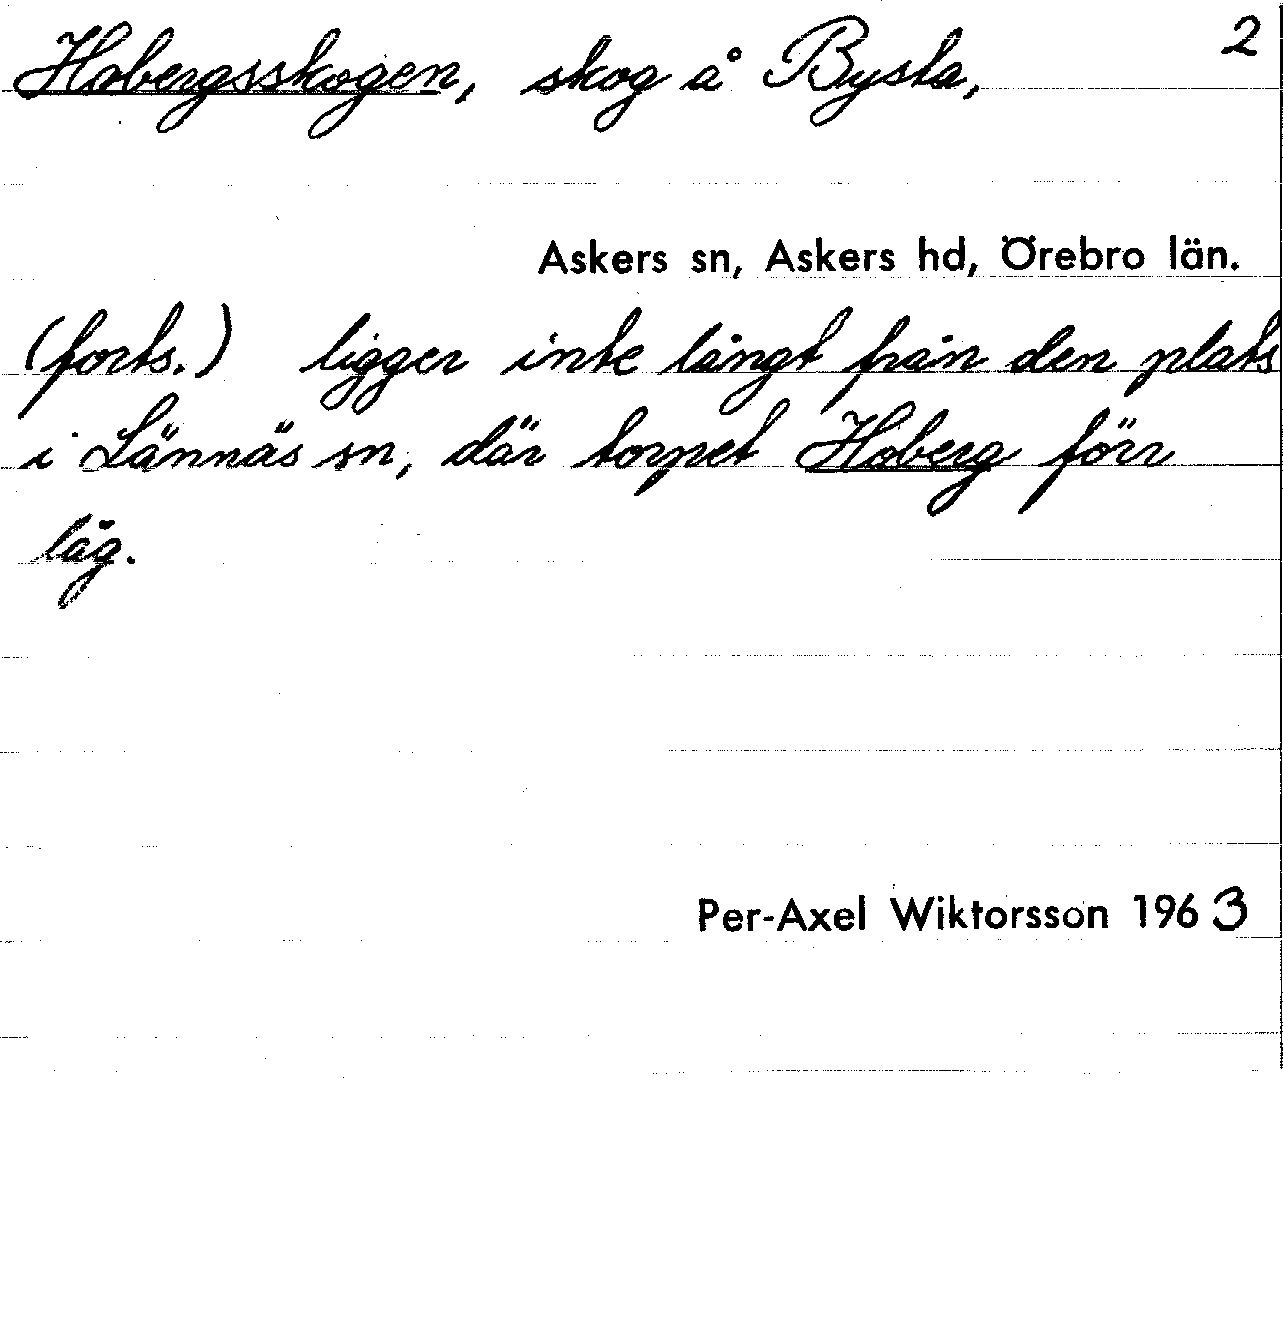 Hobergsskogen, skog å Bysta, 2
Askers sn, Askers hd, Örebro län.
(forts.) ligger inte långt från den plats
i Lännäs sn, där torpet Hoberg förr
låg.
Per-Axel Wiktorsson 1963